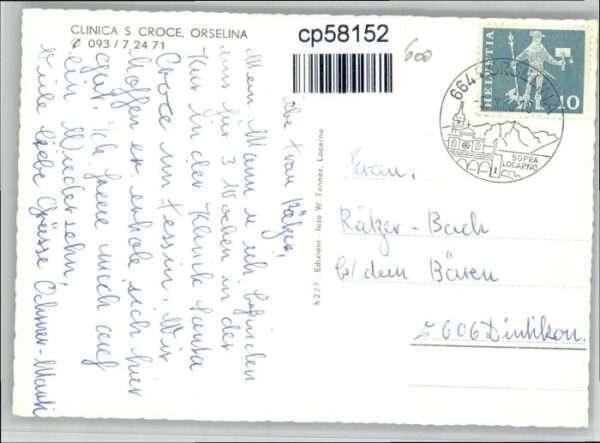 CLINICA S. CROCE, ORSELINA
✆ 093/7 24 71
cp58152
600
HELVETIA
10
SOPRA
LOCARNO
Liebe Frau Rätzer,
Mein Mann u. ich befinden
uns für 3 Wochen in der
Kur in der Klinik Santa
Croce im Tessin. Wir
hoffen er erhole sich hier
gut. Ich freue mich auf
ein Wiedersehn,
viele liebe Grüsse
h 227 - Edizioni - foto W. Tanner, Locarno
Frau.
Rätzer-Bach
b/ dem Bären
5606 Dintikon.